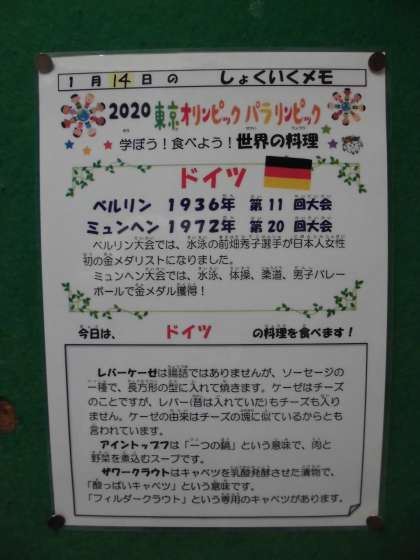 1月14日の しょくいくメモ
2020東京オリンピック パラリンピック
学ぼう！食べよう！世界の料理
ドイツ
ベルリン 1936年 第11回大会
ミュンヘン 1972年 第20回大会
ベルリン大会では、水泳の前畑秀子選手が日本人女性
初の金メダリストになりました。
ミュンヘン大会では、水泳、体操、柔道、男子バレー
ボールで金メダル獲得！
今日は、 ドイツ の料理を食べます！
レバーケーゼは腸詰ではありませんが、ソーセージの
一種で、長方形の型に入れて焼きます。ケーゼはチーズ
のことですが、レバー（昔は入れていた）もチーズも入り
ません。ケーゼの由来はチーズの塊に似ているからとも
言われています。
アイントップフは「一つの鍋」という意味で、肉と
野菜を煮込むスープです。
ザワークラウトはキャベツを乳酸発酵させた漬物で、
「酸っぱいキャベツ」という意味です。
「フィルダークラウト」という専用のキャベツがあります。